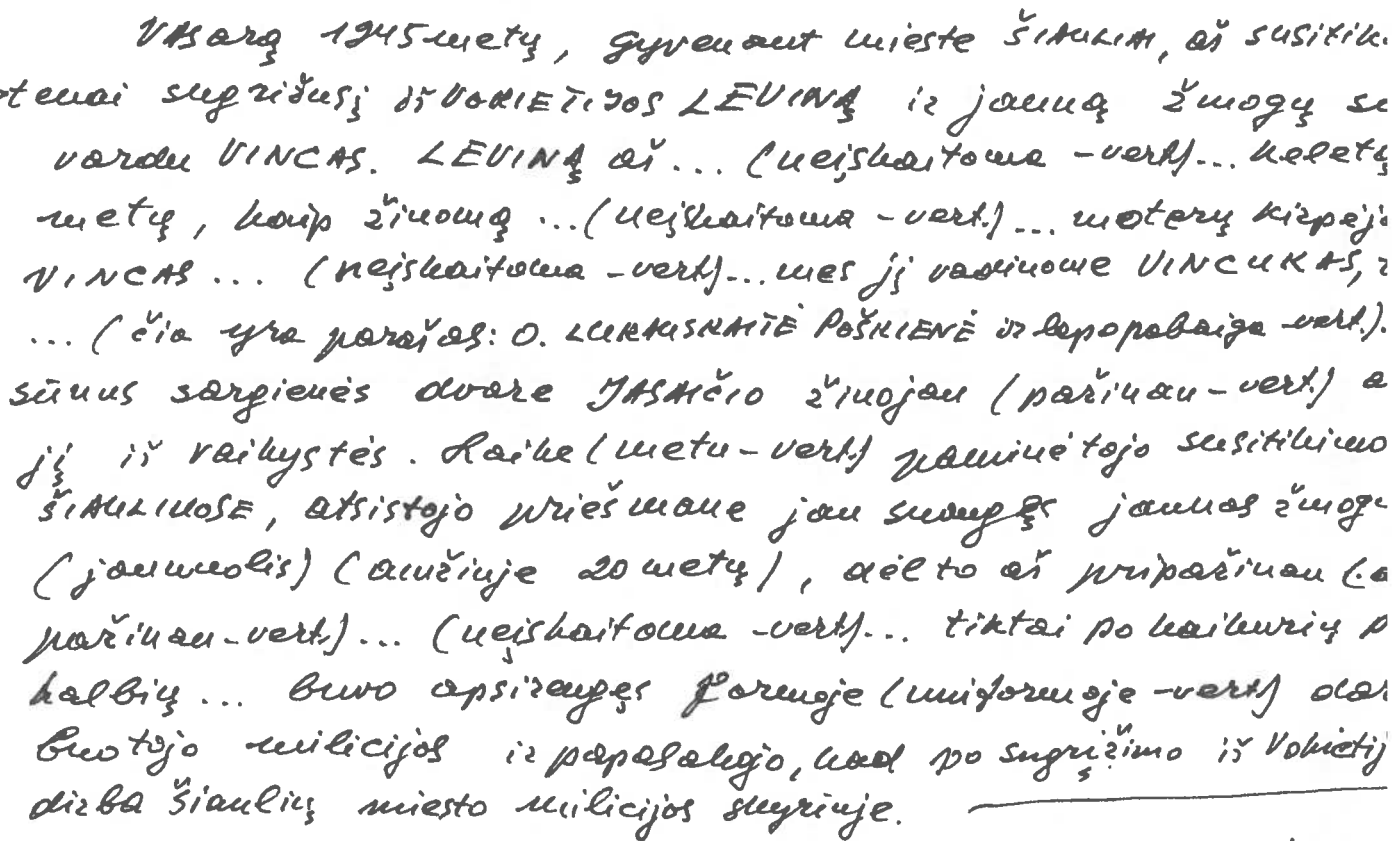 VASARĄ 1945 metų, gyvenant mieste ŠIAULIAI, aš susitik
tenai sugrižusį iš VOKIETIJOS LEVINĄ ir jauną žmogų su
vardu VINCAS. LEVINĄ aš ... (neįskaitoma - vert.) ... keletą
metų, kaip žinomą ... (neįskaitoma - vert.) ... moterų kirpėjo
VINCAS ... (neįskaitoma - vert.) ... mes jį vadinome VINCUKAS,
... (čia yra parašas: O. LUKAUSKAITĖ POŠKIENĖ ir lapo pabaiga - vert.).
sūnus sargienės dvare JASAIČIO žinojau (pažinau - vert.) a
jį iš vaikystės. Laike (metu - vert.) paminėtojo susitikimo
ŠIAULIUOSE, atsistojo prieš mane jau suaugęs jaunas žmogu
(jaunuolis) (amžiuje 20 metų), dėlto aš pripažinau (.a
pažinau - vert.) ... (neįskaitoma - vert.) ... tiktai po kaikurių p
kalbių ... buvo apsirengęs formoje (uniformoje - vert.) dar
buotojo milicijos ir papasakojo, kad po sugrįžimo iš Vokietij
dirba Šiaulių miesto milicijos skyriuje.